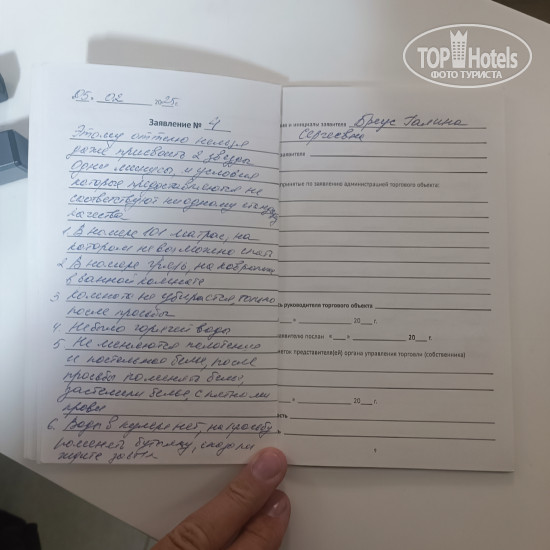 TOP Hotels
ФОТО ТУРИСТА
25. 02 2025г.
Заявление № 4
Этому отелю нельзя
даже присвоить 2 звезды
Одни минусы и условия
которые предоставляются не
соответствуют ни одному стандарту
качества
1. В номере 101 матрас, на
котором не возможно спать
2. В номере грязь, на
в ванной комнате
3 комната не убирается только
после просьбы
4. Не было горячей воды
5. Не меняются полотенца
и постельное белье, после
просьбы поменять белье,
застелили белье с пятнами
крови
6. Воды в кулере нет, на просьбу
поменять бутылку, сказали
ждите завтра
ия и инициалы заявителя Бреус Галина
Сергеевна
заявителя
принятые по заявлению администрацией торгового объекта:
ь руководителя торгового объекта
» 20 г.
заявителю послан « » 20 г.
меток представителя(ей) органа управления торговли (собственника)
» 20 г.
ость
ь